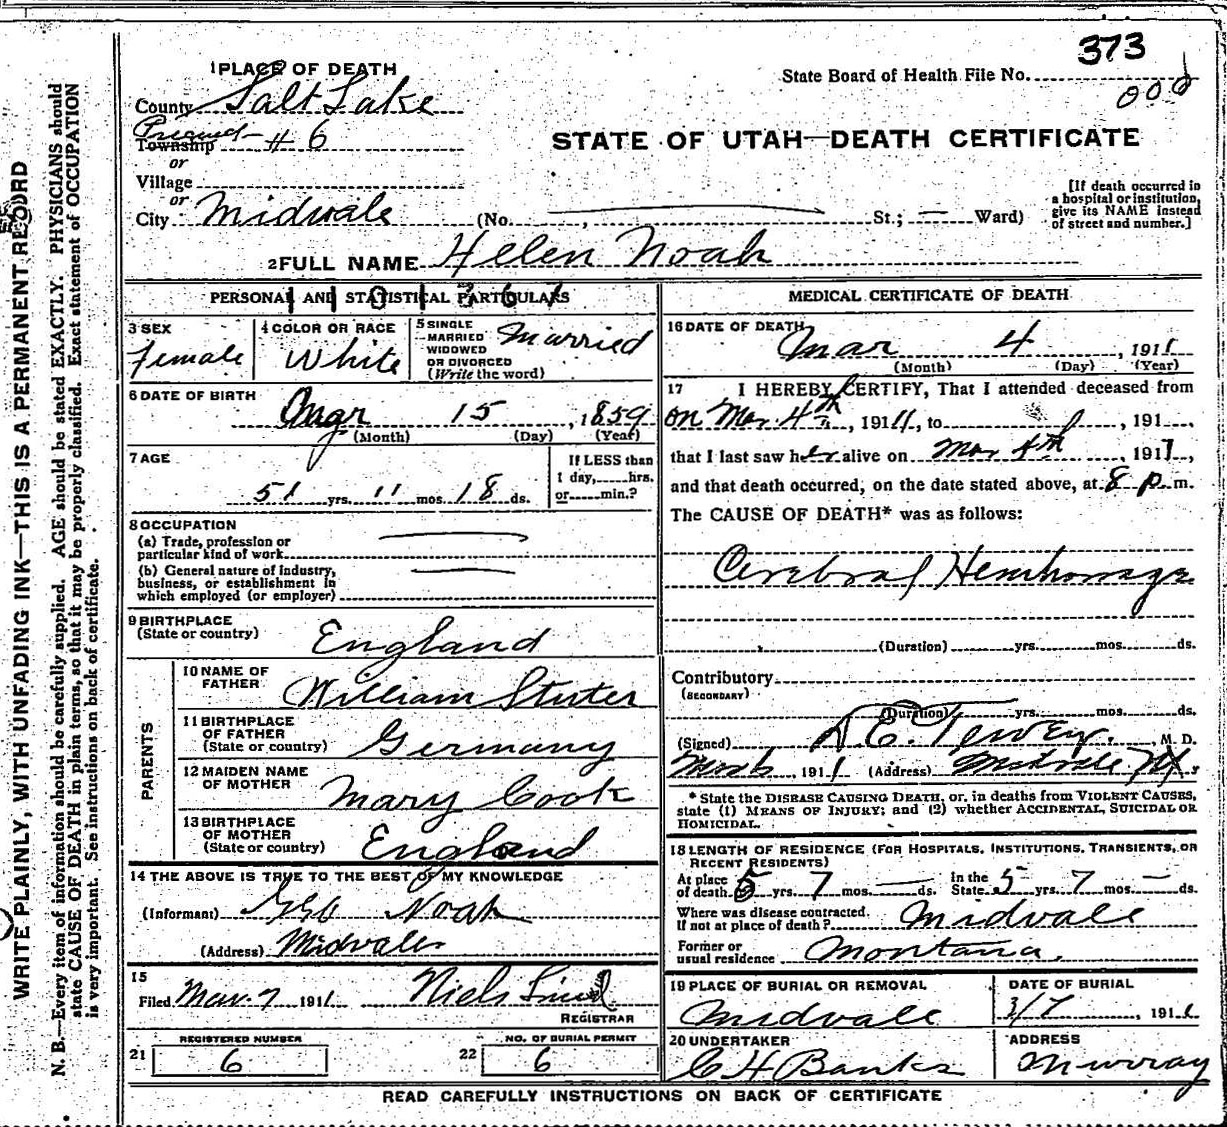 373
State Board of Health File No.
000
1 PLACE OF DEATH
County Salt Lake
Precinct
Township # 6
or
Village
or
City Midvale (No. , St.; Ward)
STATE OF UTAH—DEATH CERTIFICATE
[If death occurred in
a hospital or institution,
give its NAME instead
of street and number.]
2 FULL NAME Helen Noah
PERSONAL AND STATISTICAL PARTICULARS
3 SEX
Female
4 COLOR OR RACE
White
5 SINGLE
MARRIED
WIDOWED
OR DIVORCED
(Write the word)
Married
6 DATE OF BIRTH
15, 1859
(Month) (Day) (Year)
7 AGE
51 yrs. 11 mos. 18 ds.
If LESS than
1 day, hrs.
or min.?
8 OCCUPATION
(a) Trade, profession or
particular kind of work
(b) General nature of industry,
business, or establishment in
which employed (or employer)
9 BIRTHPLACE
(State or country)
England
PARENTS
10 NAME OF
FATHER
William Stuter
11 BIRTHPLACE
OF FATHER
(State or country)
Germany
12 MAIDEN NAME
OF MOTHER
Mary Cook
13 BIRTHPLACE
OF MOTHER
(State or country)
England
14 THE ABOVE IS TRUE TO THE BEST OF MY KNOWLEDGE
(Informant) Geo Noah
(Address) Midvale
15
Filed Mar. 7 1911 Niels Lind
REGISTRAR
REGISTERED NUMBER
21 6
NO. OF BURIAL PERMIT
22 6
MEDICAL CERTIFICATE OF DEATH
16 DATE OF DEATH
Mar 4, 1911
(Month) (Day) (Year)
17 I HEREBY CERTIFY, That I attended deceased from
on Mar. 4th, 1911, to , 191 ,
that I last saw her alive on Mar 4th, 1911,
and that death occurred, on the date stated above, at 8 p. m.
The CAUSE OF DEATH* was as follows:
Cerebral Hemhorrage
(Duration) yrs. mos. ds.
Contributory
(SECONDARY)
(Duration) yrs. mos. ds.
(Signed) D. E. M. D.
Mar 6, 1911 (Address) Midvale
* State the DISEASE CAUSING DEATH, or, in deaths from VIOLENT CAUSES,
state (1) MEANS OF INJURY; and (2) whether ACCIDENTAL, SUICIDAL OR
HOMICIDAL.
18 LENGTH OF RESIDENCE (FOR HOSPITALS, INSTITUTIONS, TRANSIENTS, OR
RECENT RESIDENTS)
At place
of death 5 yrs. 7 mos. — ds. In the
State 5 yrs. 7 mos. — ds.
Where was disease contracted.
If not at place of death? Midvale
Former or
usual residence Montana.
19 PLACE OF BURIAL OR REMOVAL
Midvale
DATE OF BURIAL
3/7, 1911
20 UNDERTAKER
C H Banks
ADDRESS
Murray
READ CAREFULLY INSTRUCTIONS ON BACK OF CERTIFICATE
WRITE PLAINLY, WITH UNFADING INK—THIS IS A PERMANENT RECORD
N. B.—Every item of information should be carefully supplied. AGE should be stated EXACTLY. PHYSICIANS should
state CAUSE OF DEATH in plain terms, so that it may be properly classified. Exact statement of OCCUPATION
is very important. See instructions on back of certificate.